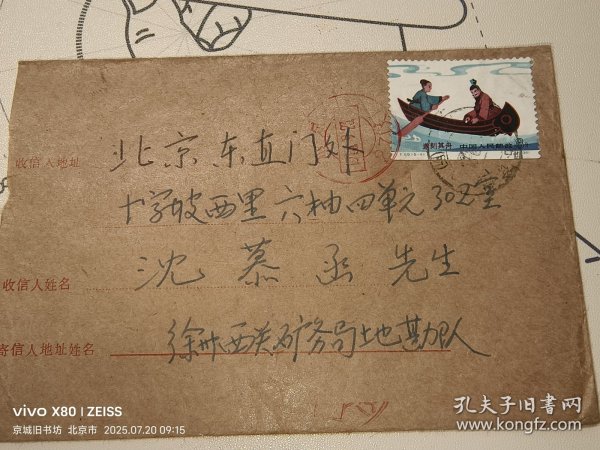 收信人地址 北京东直门外
十字坡西里六柚四单元302室
收信人姓名 沈慕函先生
寄信人地址姓名 徐州西关矿务局地勘队
刻舟
中国人民邮政
vivo X80 | ZEISS
京城旧书坊 北京市 2025.07.20 09:15
孔夫子旧书网
www.kongfz.com